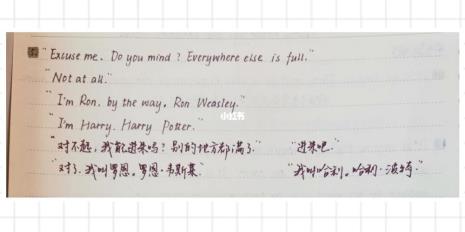 "Excuse me. Do you mind? Everywhere else is full."
"Not at all."
"I'm Ron, by the way, Ron Weasley."
"I'm Harry, Harry Potter."
小红书
"对不起,我能进来吗?别的地方都满了." "进来吧."
"对了,我叫罗恩。罗恩·韦斯莱." "我叫哈利。哈利·波特."